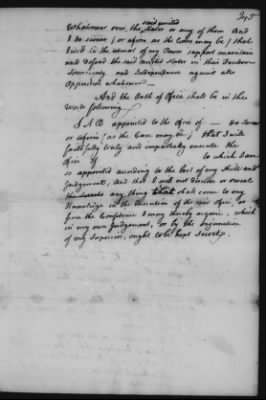 345
said united
Whatsoever over the States or any of them And
I do swear (or afirm as the Case may be) that
I will to the utmost of my Power support maintain
and defend the said united States in their Freedom
Sovereignty and Independence against all
Opposition whatsoever —
And the Oath of Office shall be in these
Words following
I A B appointed to the office of — do Swear
or Afirm (as the Case may be) that I will
faithfully truly and impartially execute the
Office of to which I am
so appointed according to the best of my Skill and
Judgement; And that I will not disclose or reveal
any thing that shall come to my
Knowledge in the Execution of the said Office, or
from the Confidence I may thereby acquire, which
in my own Judgement, or by the Injunction
of my Superiors, ought to be kept Secret.